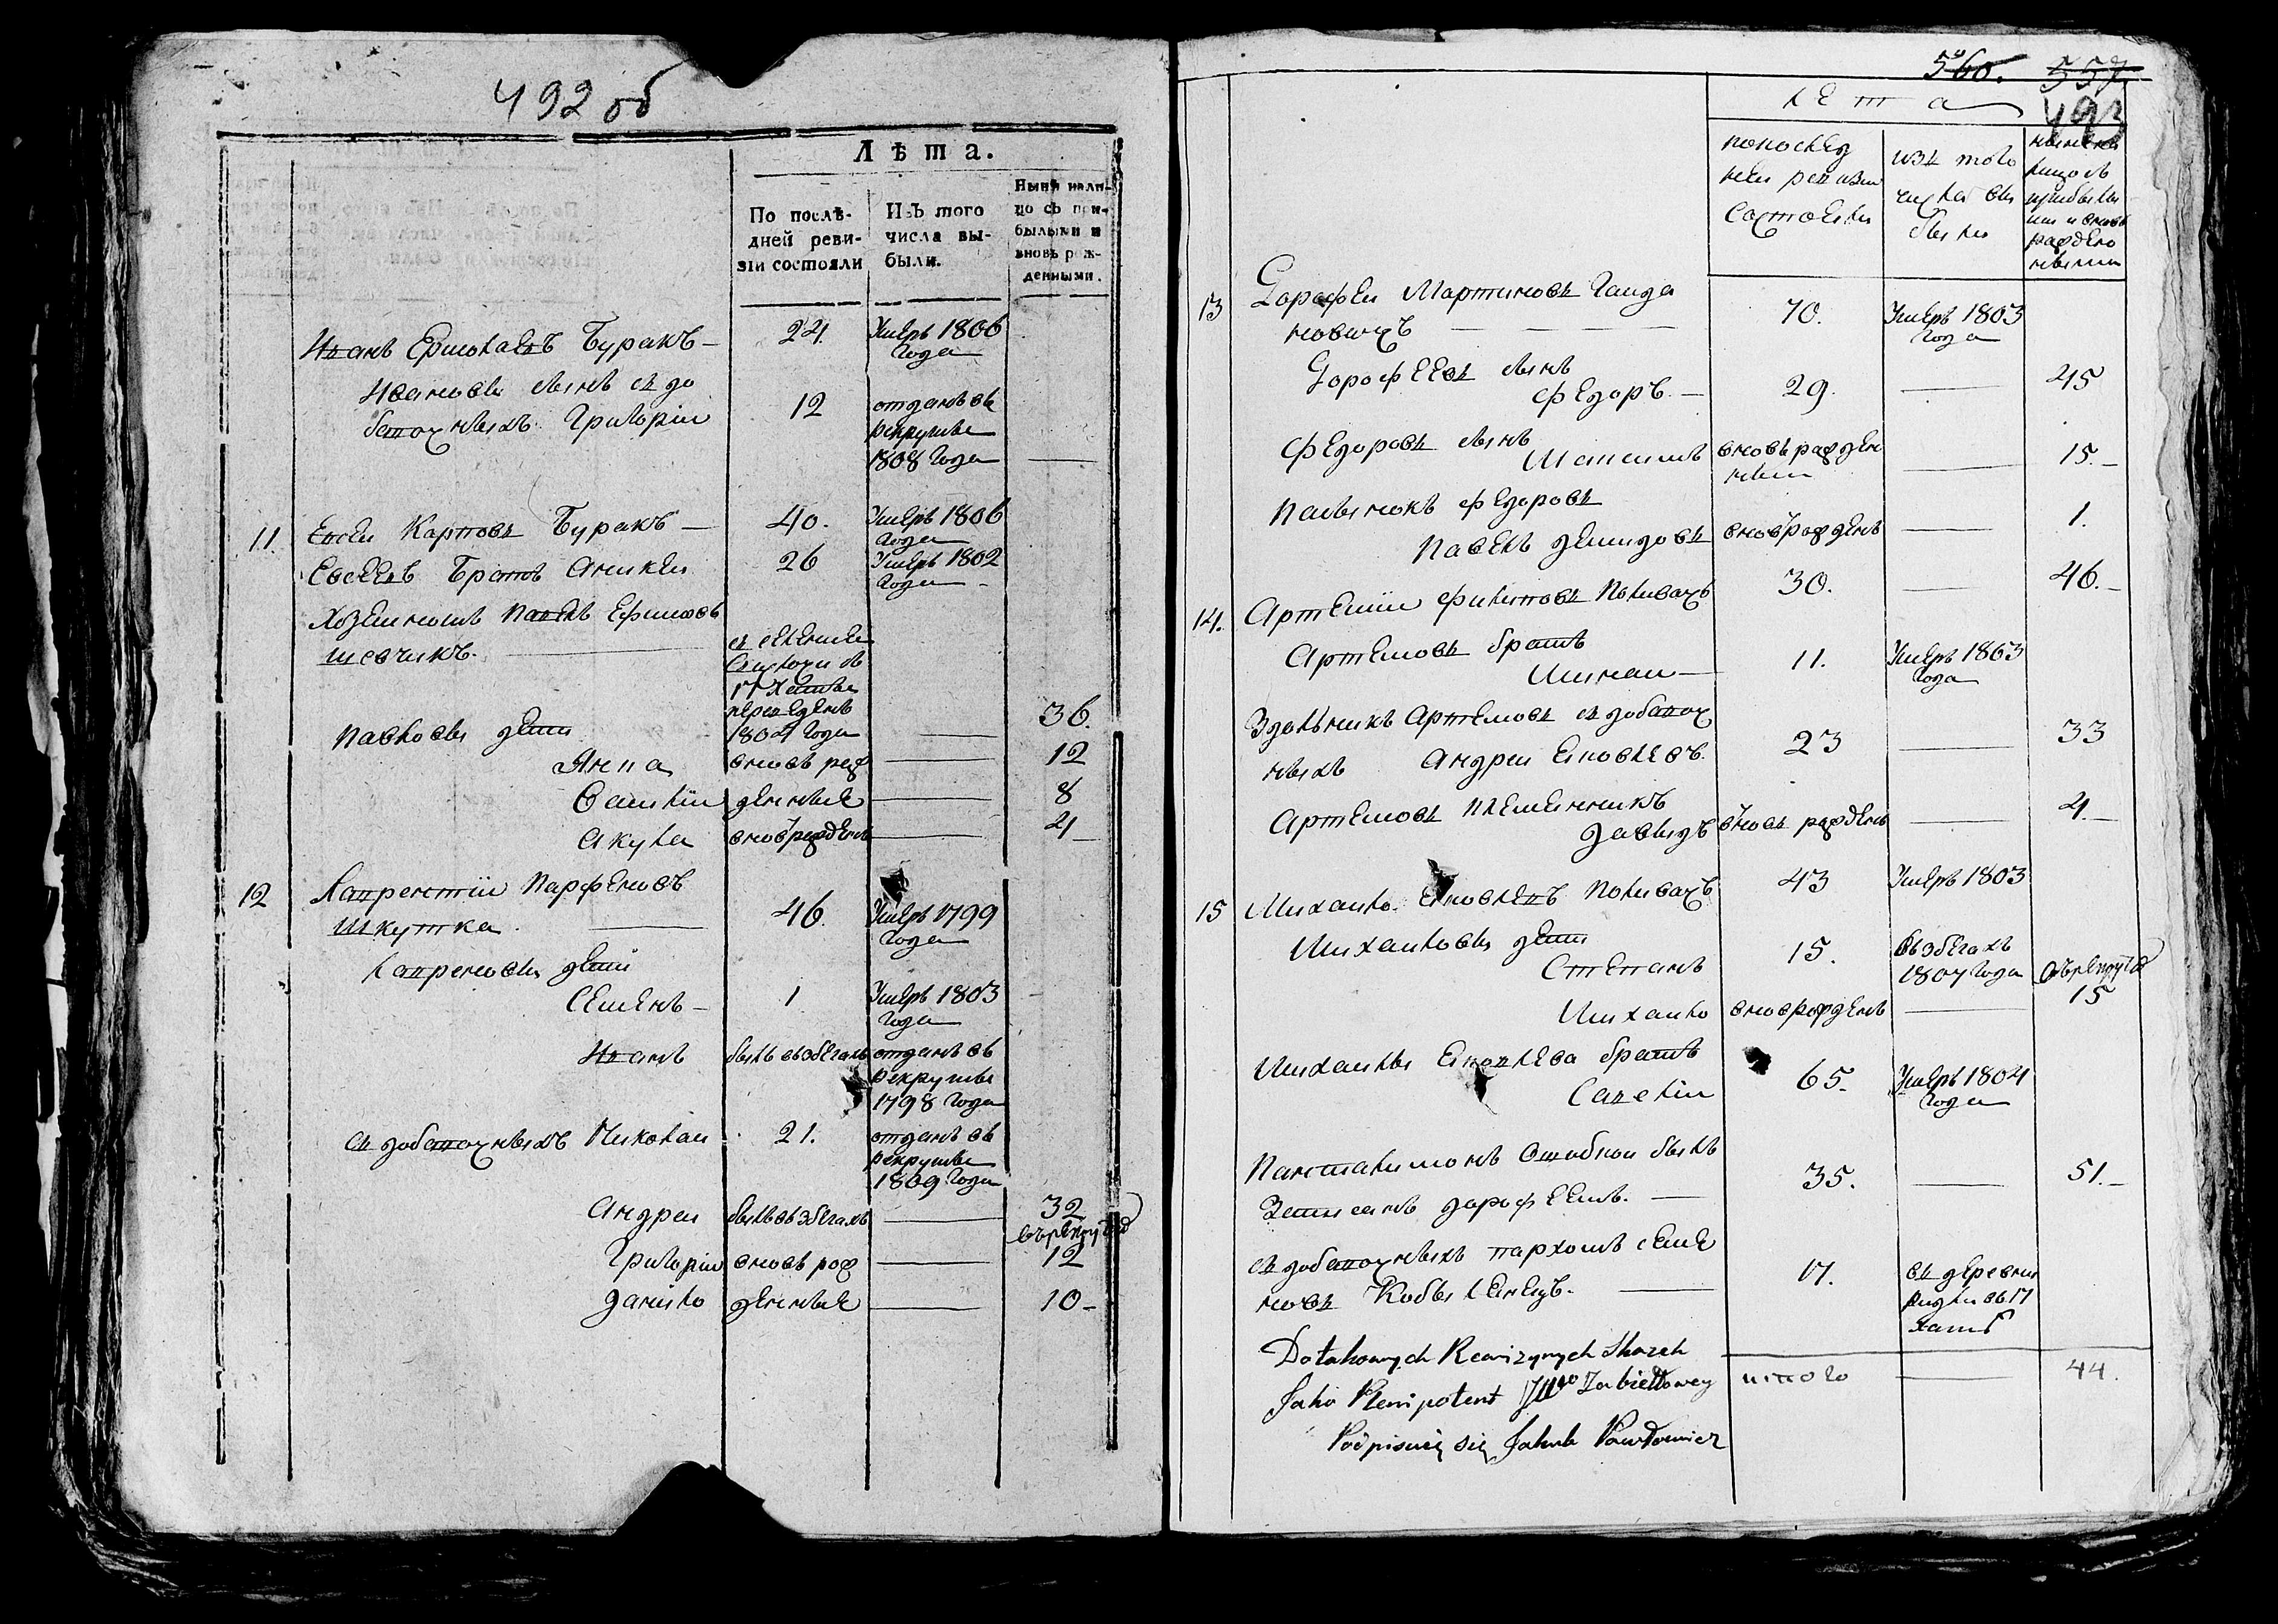 492 об
Лѣта.
По послѣ-
дней реви-
зіи состояли
Изъ того
числа вы-
были.
Нынѣ нали-
цо съ при-
былыми и
вновь рож-
денными.
Иванъ Ермолаевъ Буракъ — 24 Умеръ 1806
года
Ивановы сынъ въ до
баточныхъ Григорій 12 отданъ въ
рекруты
1808 года —
11. Евсей Карповъ Буракъ — 40. Умеръ 1806
года
Евсеевъ Братъ Аникей 26 Умеръ 1802
года
Хозяиномъ Павелъ Ефимовъ
Шевчикъ. —
переведенъ
1804 года — 36.
Павловы дети
вновь рож — 12
Василій денные — 8
Акула вновь рожденъ — 4
12 Лаврентій Парфеновъ
Шкутка — 46. Умеръ 1799
года
Лавреновы дети
Семенъ — 1 Умеръ 1803
года
Иванъ былъ въ збегахъ отданъ въ
рекруты
1798 года
въ добаточныхъ Николай 21. отданъ въ
рекруты
1809 года
Андрей былъ въ збегахъ — 32
Григорій вновь рож — 12
Данило денные — 10
560. 557
493
лета
по послед
ней ревизии
состояли
изъ того
числа вы
были
ныне на
лицо съ
прибылы
ми и вновь
рожденно
ными
13 Дорофей Мартиновъ Гайда
новичъ — 70. Умеръ 1803
года
Дорофеевъ сынъ
Федоръ. — 29. — 45
Федоровъ сынъ
Максимъ вновь рожден
ный — 15.
Пасынокъ Федоровъ
Павелъ Демидовъ вновь рожденъ — 1.
14. Артемій Филиповъ Поливачъ 30. — 46.
Артемовъ братъ
Минай — 11. Умеръ 1803
года
Здольникъ Артемовъ въ добаточ
ныхъ Андрей Яковлевъ. 23 — 33
Артемовъ племянникъ
Давыдъ вновь рожденъ — 4.
15 Михайло Яковлевъ Поливачъ 43 Умеръ 1803
Михайловы дети
Степанъ 15. въ збегахъ
1807 года
Михайло вновь рожденъ — 15
Михайлы Яковлева братъ
Савелій 65. Умеръ 1804
года
Панталимонъ ошибкой былъ
Записанъ Дорофеемъ. — 35. — 51.
въ добаточныхъ Пархомъ Семе
новъ Кобылянецъ. — 17. въ деревни
въ 17
хатѣ
Do takowych Rewizynych Skazek
Jako Plenipotent JWo Zabiełłowey итого — 44.
Podpisuię się Jakub Pawłowicz